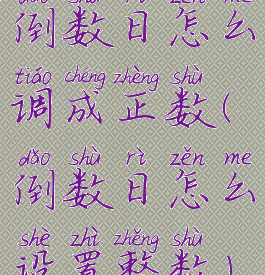 dǎo shù rì zěn me
倒数日怎么
tiáo chéng zhèng shù
调成正数(
dǎo shù rì zěn me
倒数日怎么
shè zhì zhěng shù
设置整数)